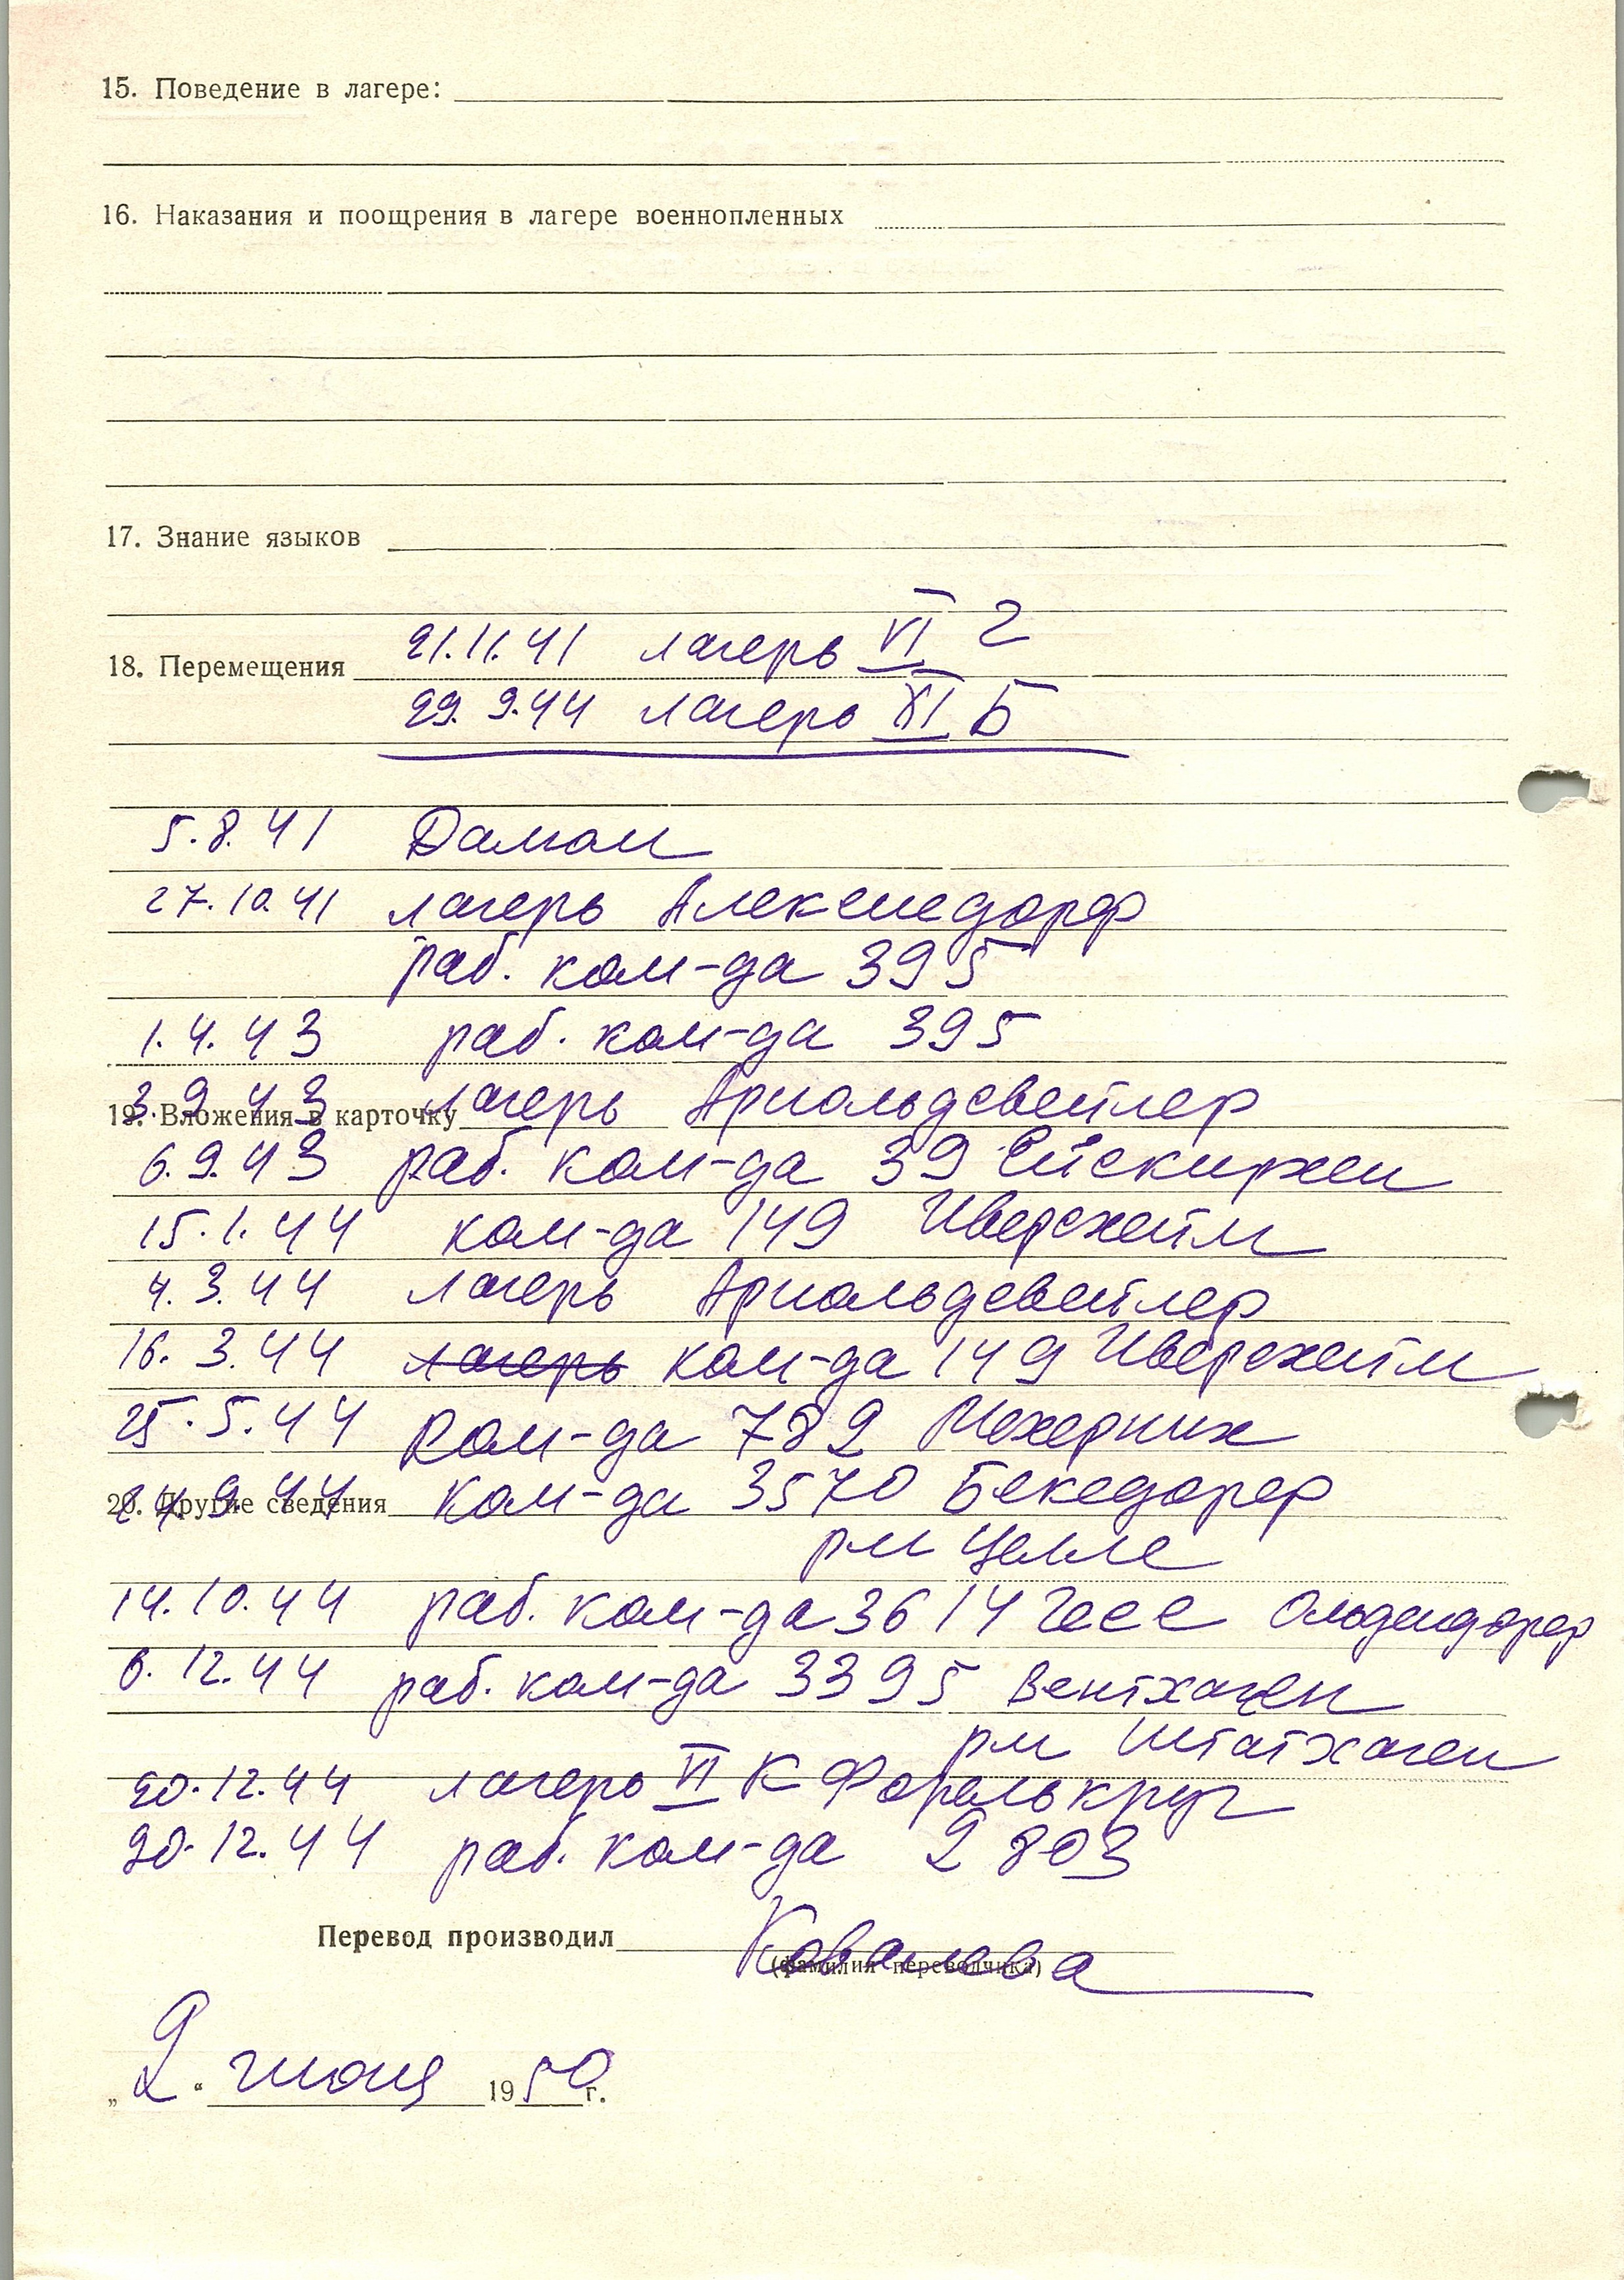 15. Поведение в лагере:
16. Наказания и поощрения в лагере военнопленных
17. Знание языков
21.11.41 лагерь VI Г
18. Перемещения
29.9.44 лагерь XI Б
5.8.41
27.10.41 лагерь
раб. ком-да 395
1.4.43 раб. ком-да 395
3.9.43 лагерь Арнольдсвейлер
19. Вложения в карточку
6.9.43 раб. ком-да 39 Ейскирхен
15.1.44 ком-да 149 Иверсхейм
4.3.44 лагерь Арнольдсвейлер
16.3.44 лагерь ком-да 149 Иверсхейм
25.5.44 ком-да 782 Мехерних
24.9.44 ком-да 3570 Бекедорф
20. Другие сведения
рм Целле
14.10.44 раб. ком-да 3614 Гесс Ольдендорф
6.12.44 раб. ком-да 3395 Вентхаген
рм Штатхаген
20.12.44 лагерь VI К Форелькруг
20.12.44 раб. ком-да 2803
Перевод производил Ковалева
(фамилия переводчика)
„2“ июня 1950 г.